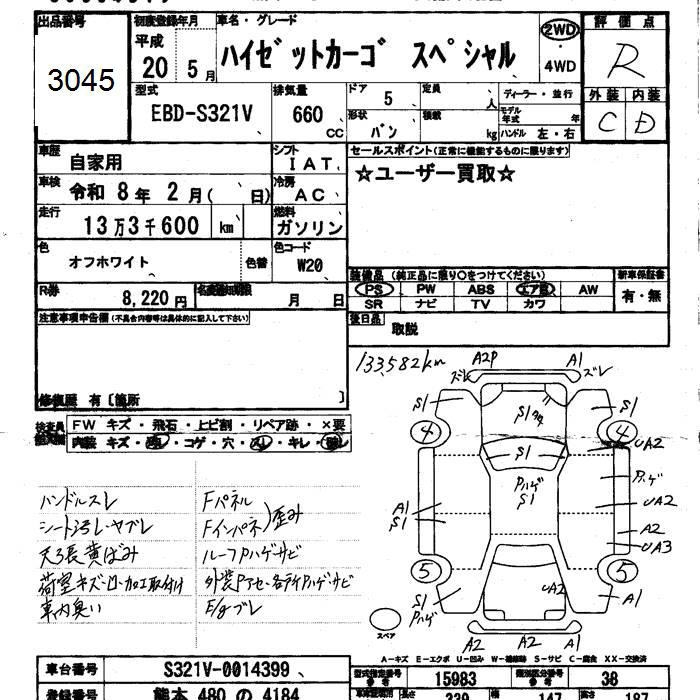 出品番号 初度登録年月 車名・グレード 評価点
3045 平成 20 5月 ハイゼットカーゴ スペシャル 2WD・4WD R
型式 排気量 ドア 定員 ディーラー・並行 外装 内装
EBD-S321V 660 CC 5 人 モデル年式 年 C D
形状 バン 積載 kg ハンドル 左・右
車歴 自家用 シフト IAT セールスポイント(正常に機能するものに限ります)
車検 令和 8年 2月( 日) 冷房 AC ☆ユーザー買取☆
走行 13万3千600 km 燃料 ガソリン
色 オフホワイト 色替 色コード W20
装備品 (純正品に限り○をつけてください) 新車保証書
PS PW ABS エアB AW 有・無
SR ナビ TV カワ
R券 8,220円 名変通知期限 月 日
後日品 取説
注意事項申告欄(不具合内容等は具体的に記入して下さい)
修復歴 有〔箇所 〕
検査員 FW キズ・飛石・上ビ割・リペア跡・×要
内装 キズ・ ・コゲ・穴・ ・キレ・
133,582km
A2P A1
ズレ ズレ
S1 S1 S1
4 4
S1 UA2
Pハゲ Pハゲ
S1 UA2
A1
S1 A2
UA3
5 5
S1 UA2 A1
Pハゲ
A2 A2 A2
スペア
ハンドルスレ Fパネル
シート汚レ・ヤブレ Fインパネ)歪み
天張黄ばみ ルーフPハゲサビ
荷室キズ・ロ・加工取付け 外装Pアセ・各所Pハゲサビ
車内臭い E/gブレ
A-キズ E-エクボ U-凹み W-補修跡 S-サビ C-腐食 XX-交換済
車台番号 S321V-0014399
型式指定番号 15983 類別区分番号 38
登録番号 熊本 480 の 4184
車体寸法 長さ 339 147 187